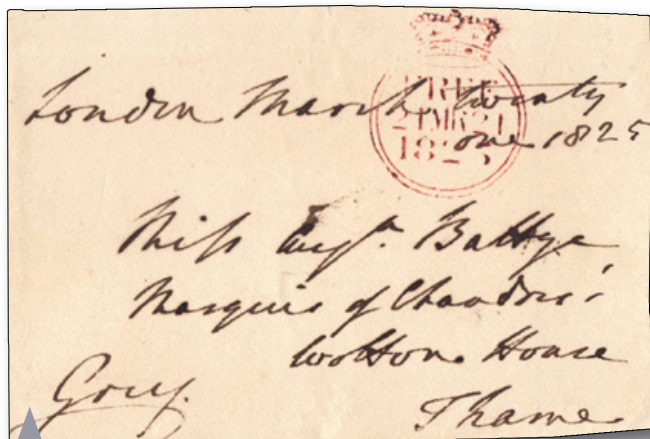 London March twenty
one 1825
FREE
21 MR 21
1825
Miss Battye
Marquis of Chandos'
Wotton House
Grey.
Thame